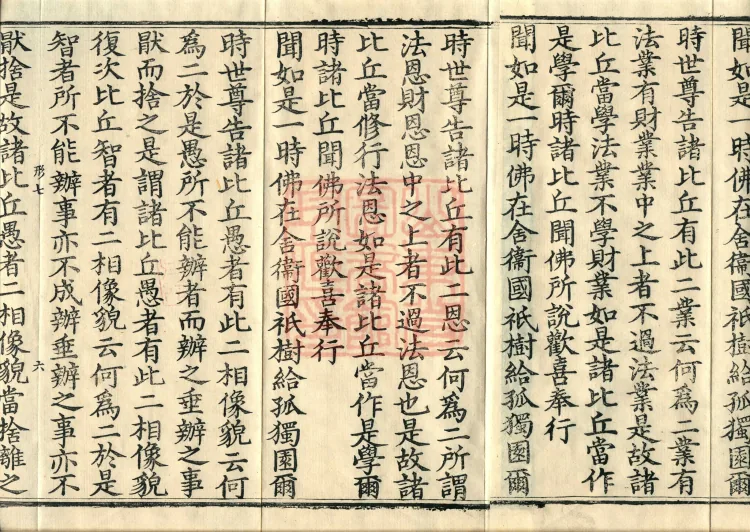 聞如是一時佛在舍衞國祇樹給孤獨園爾
時世尊告諸比丘有此二業云何爲二業有
法業有財業業中之上者不過法業是故諸
比丘當學法業不學財業如是諸比丘當作
是學爾時諸比丘聞佛所說歡喜奉行
聞如是一時佛在舍衞國祇樹給孤獨園爾
時世尊告諸比丘有此二恩云何爲二所謂
法恩財恩恩中之上者不過法恩也是故諸
比丘當修行法恩如是諸比丘當作是學爾
時諸比丘聞佛所說歡喜奉行
聞如是一時佛在舍衞國祇樹給孤獨園爾
時世尊告諸比丘愚者有此二相像貌云何
爲二於是愚所不能辦者而辦之垂辦之事
猒而捨之是謂諸比丘愚者有此二相像貌
復次比丘智者有二相像貌云何爲二於是
智者所不能辦事亦不成辦垂辦之事亦不
形七 六
猒捨是故諸比丘愚者二相像貌當捨離之